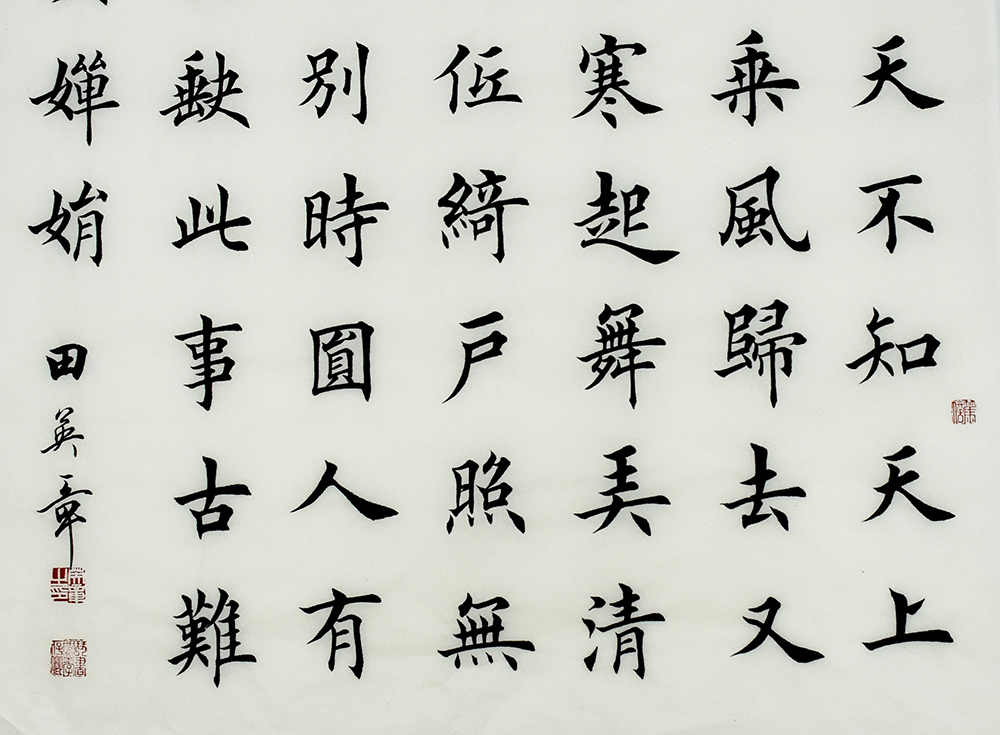 天不知天上
乘風歸去又
寒起舞弄清
低綺戶照無
別時圓人有
缺此事古難
嬋娟
田英章